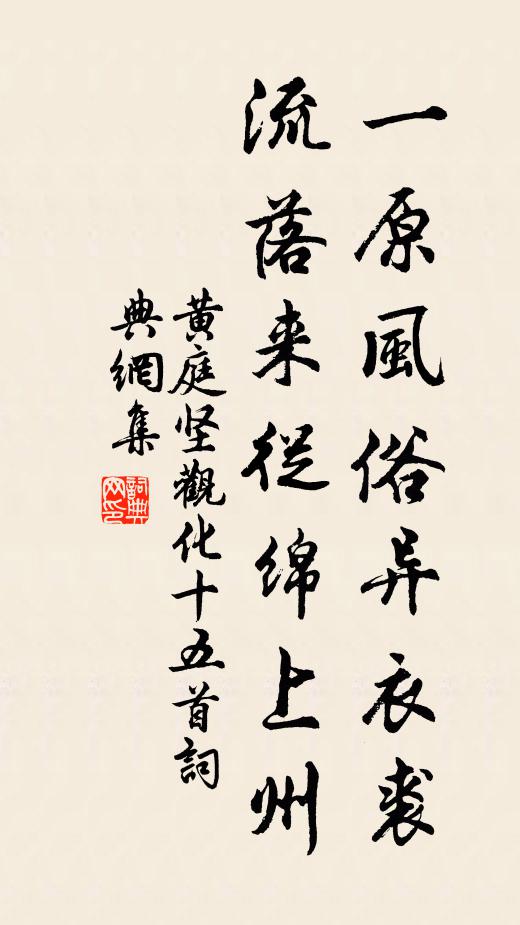 一原風俗异衣裘
流落来從绵上州
黄庭坚觀化十五首詞
典網集
詞典
网印